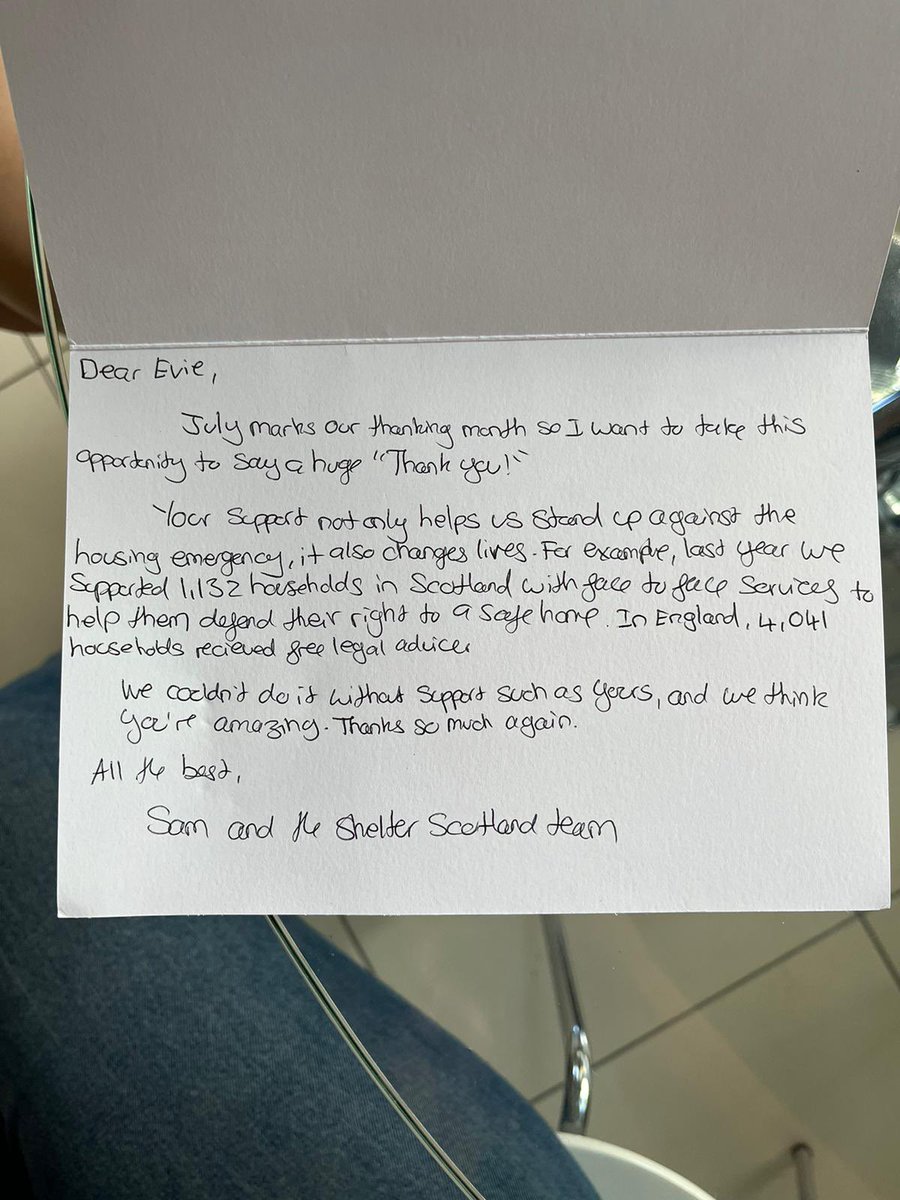 Dear Evie,
July marks our thanking month so I want to take this
opportunity to say a huge "Thank you!"
Your support not only helps us stand up against the
housing emergency, it also changes lives. For example, last year we
supported 1,132 households in Scotland with face to face services to
help them defend their right to a safe home. In England, 4,041
households recieved free legal advice.
We couldn't do it without support such as yours, and we think
you're amazing. Thanks so much again.
All the best,
Sam and the Shelter Scotland team